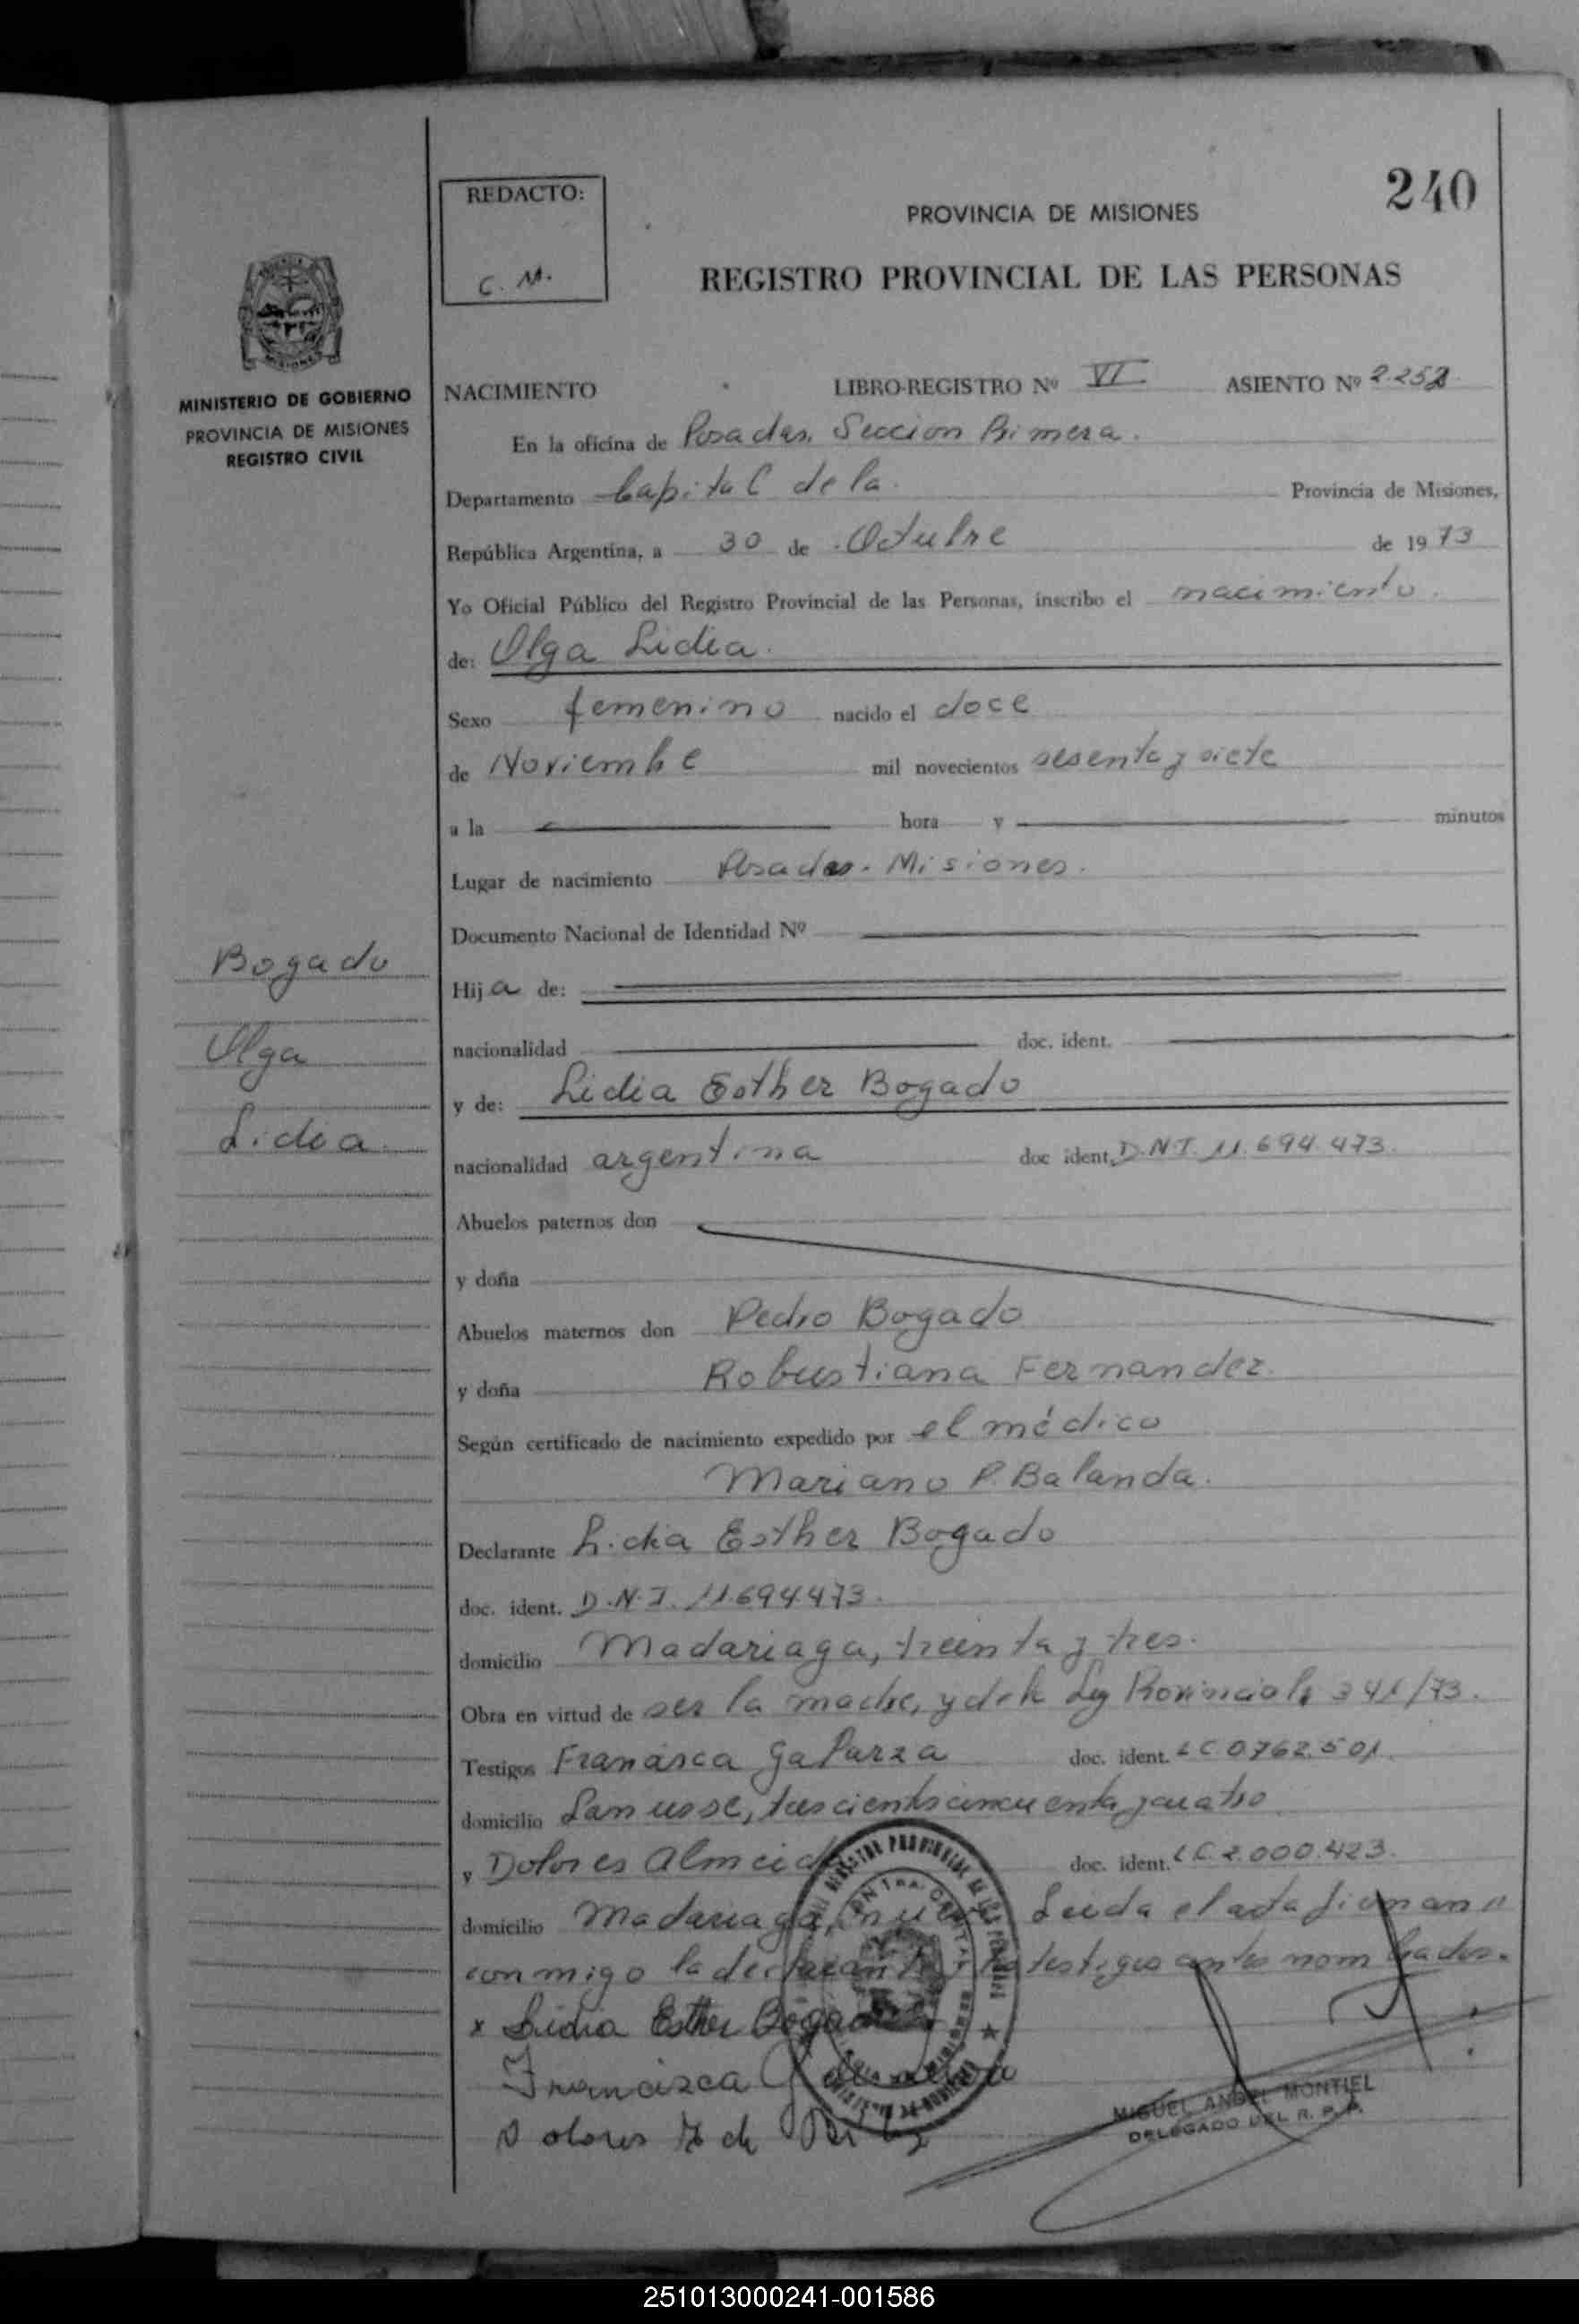 240
REDACTO:
C. M.
PROVINCIA DE MISIONES
REGISTRO PROVINCIAL DE LAS PERSONAS
MINISTERIO DE GOBIERNO
PROVINCIA DE MISIONES
REGISTRO CIVIL
NACIMIENTO LIBRO-REGISTRO Nº VI ASIENTO Nº 2.252
En la oficina de Posadas, Seccion Primera.
Departamento Capital de la Provincia de Misiones,
República Argentina, a 30 de Octubre de 1973
Yo Oficial Público del Registro Provincial de las Personas, inscribo el nacimiento
de: Olga Lidia.
Sexo femenino nacido el doce
de Noviembre mil novecientos sesenta y siete
a la hora y minutos
Lugar de nacimiento Posadas - Misiones.
Documento Nacional de Identidad Nº
Bogado
Hija de:
Olga
nacionalidad doc. ident.
y de: Lidia Esther Bogado
Lidia
nacionalidad argentina doc ident. D.N.I. 11.694.473.
Abuelos paternos don
y doña
Abuelos maternos don Pedro Bogado
y doña Robustiana Fernandez.
Según certificado de nacimiento expedido por el médico
Mariano P. Balanda.
Declarante Lidia Esther Bogado
doc. ident. D.N.I. 11.694.473.
domicilio Madariaga, treinta y tres.
Obra en virtud de ser la madre, y de la Ley Provincial, 341/73.
Testigos Francisca Galarza doc. ident. LC 0.762.501.
domicilio Lanusse, trescientos cincuenta y cuatro
y Dolores Almeida doc. ident. LC 2.000.423.
domicilio Madariaga, Leida el acta firman
conmigo la declarante y los testigos antes nombrados.
x Lidia Esther Bogado
Francisca Galarza
Dolores de
MIGUEL ANGEL MONTIEL
DELEGADO DEL R. P. P.
251013000241-001586